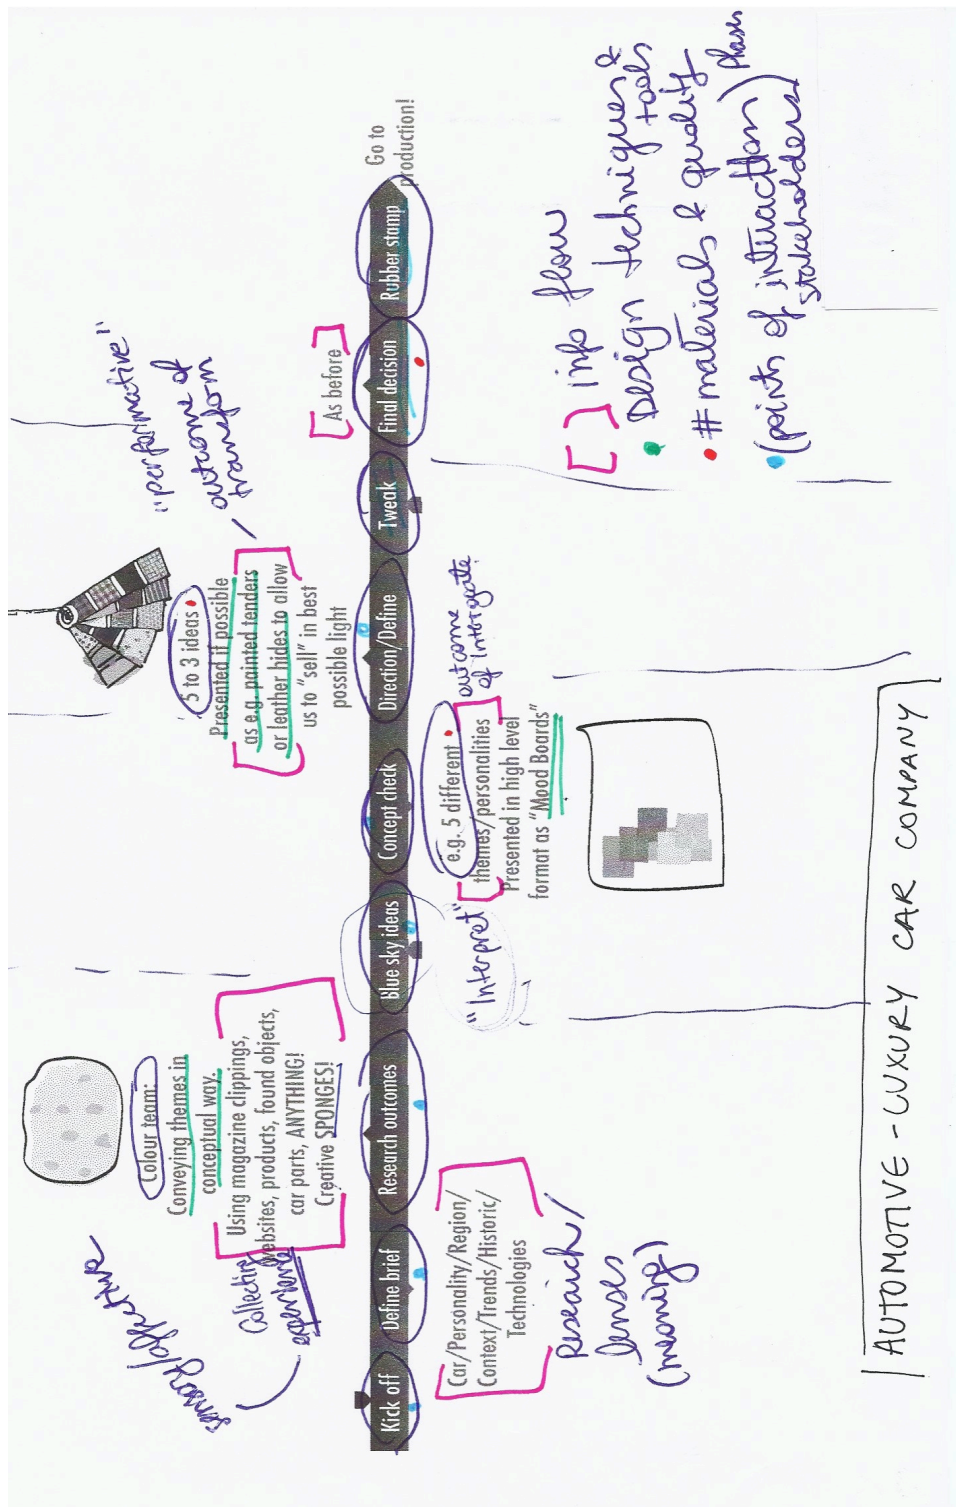 Colour team:
Conveying themes in
conceptual way.
Using magazine clippings,
websites, products, found objects,
car parts, ANYTHING!
Creative SPONGES!
sensory/affective
Collecting
experience
5 to 3 ideas
Presented if possible
as e.g. painted tenders
or leather hides to allow
us to "sell" in best
possible light
"performative"
outcome of
transform
[As before]
Kick off
Define brief
Research outcomes
Blue sky ideas
Concept check
Direction/Define
Tweak
Final decision
Rubber stamp
Go to
production!
Car/Personality/Region/
Context/Trends/Historic/
Technologies
Research/
lenses
(meaning)
"Interpret"
e.g. 5 different
themes/personalities
Presented in high level
format as "Mood Boards"
outcome
of Interpret
[ ] info flow
Design techniques &
tools
# materials & quality
(points of interaction) Phases
stakeholders)
AUTOMOTIVE - LUXURY CAR COMPANY